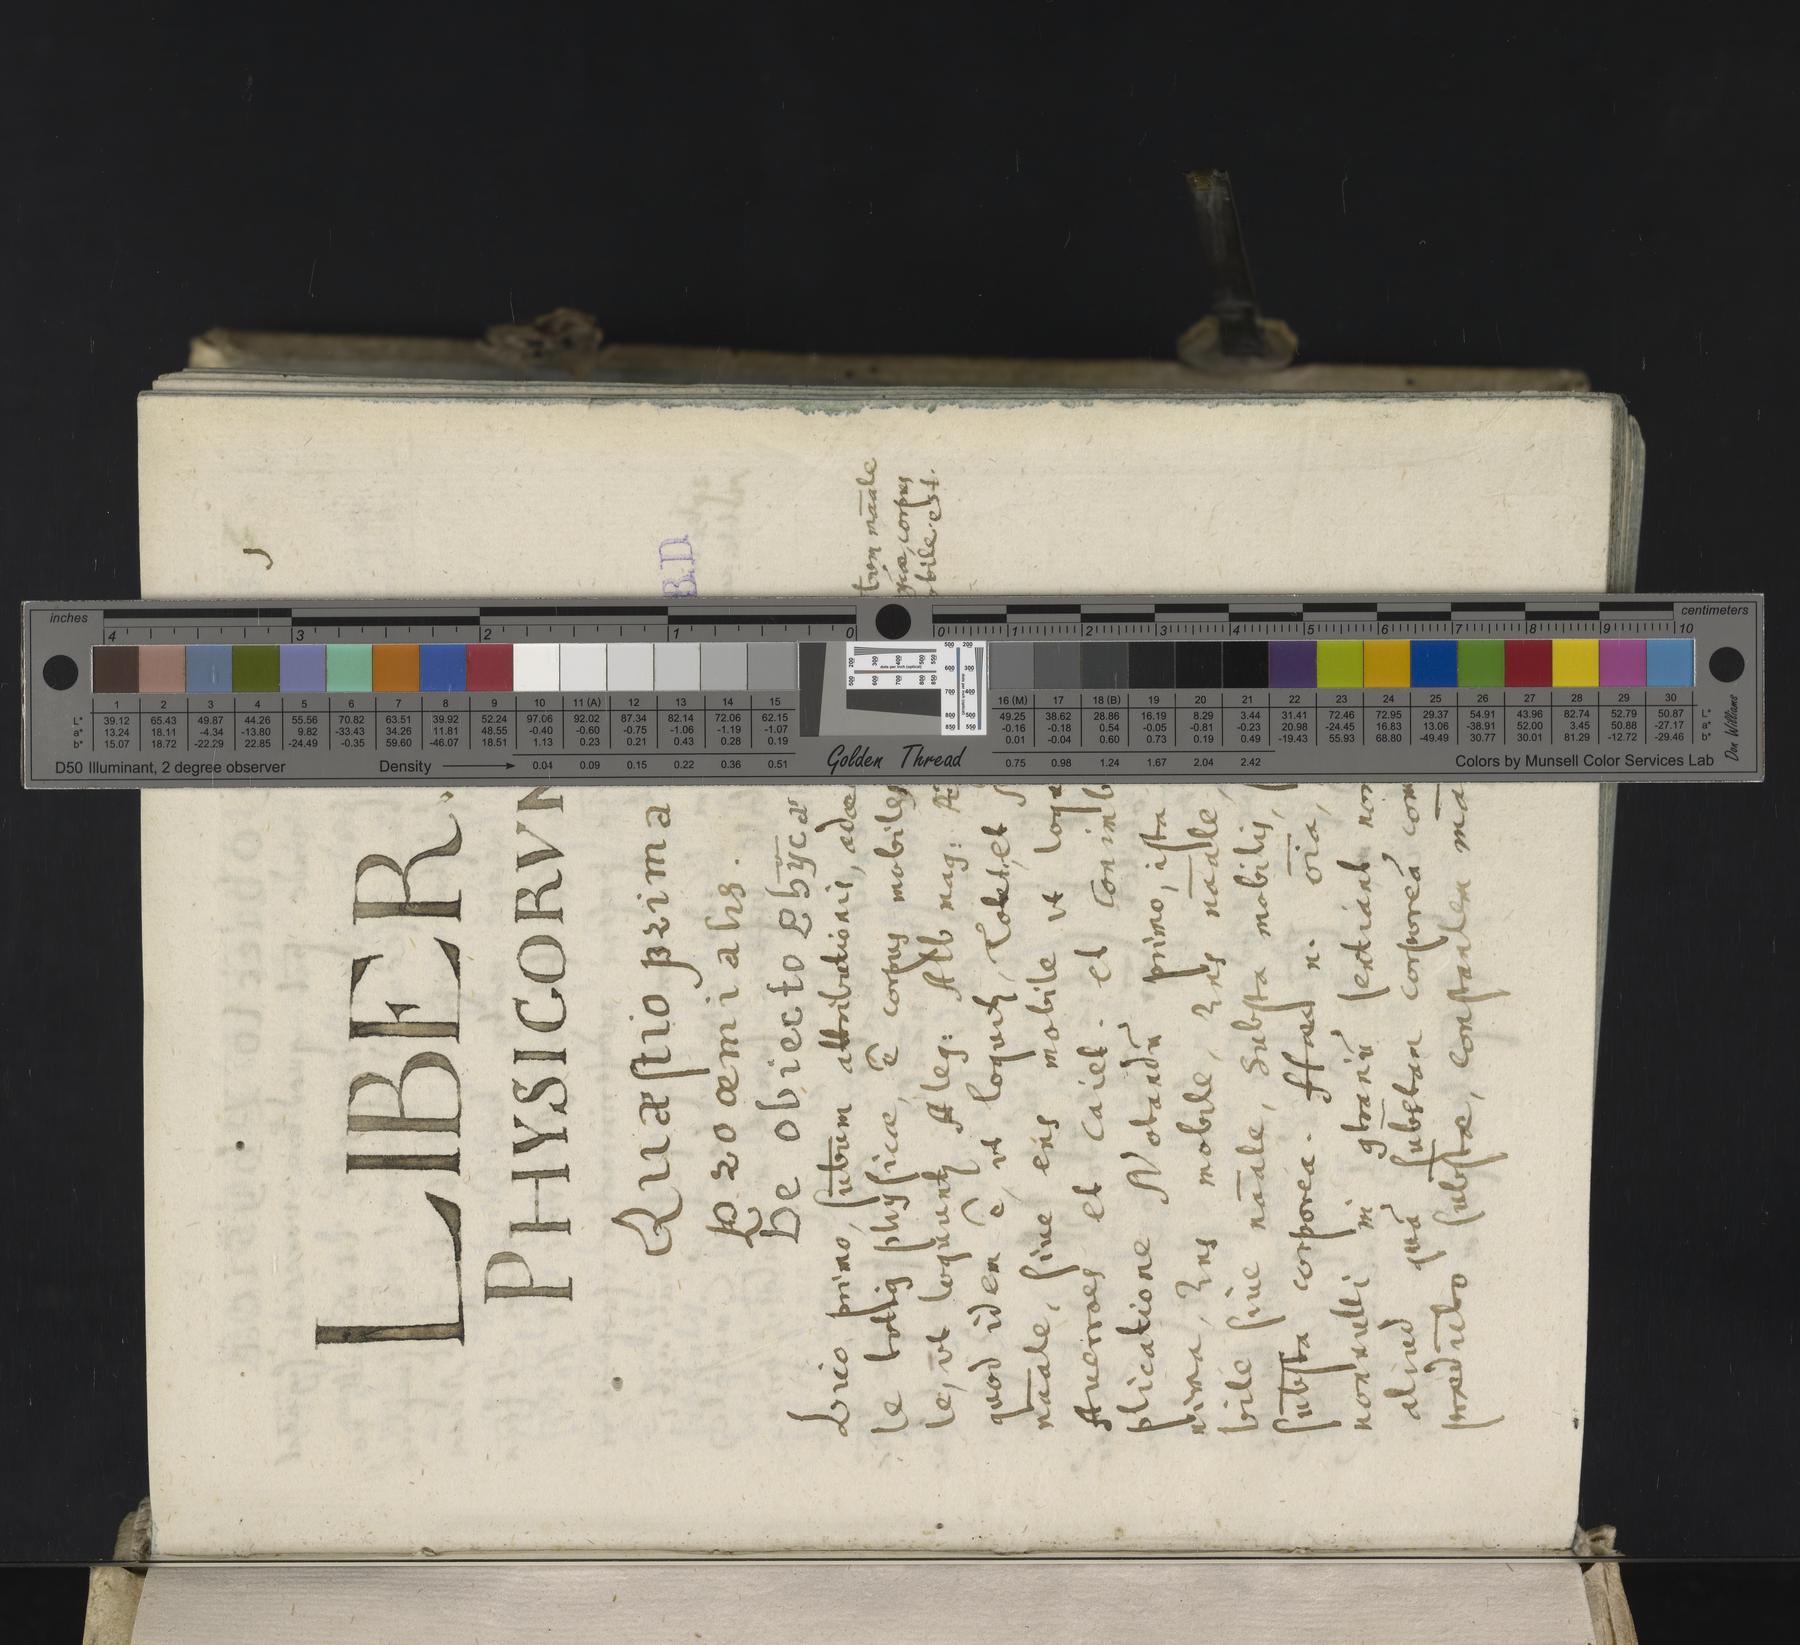 LIBER.
PHYSICORVM
Quæstio prima
Proæmialis.
De obiecto Phycæ
Dico primo, subtum attributionis, adæ
le totig physicæ, ē corpus mobile,
le, vt loquunt Aleg: Alb mag:
quod idem ē, vt loquut, Tolet, et
naāle, siue ens mobile vt loq
Auerroes et Caiet. et Conimb
plicatione Notandū primo, ista
nima, Ens mobile, Ens naāle,
bile siue naāle, Substa mobilis,
substa corporea. n. oīa,
nonnulli sentiant non
aliud quā substan corporeā com
substæ, constantem mā
naāle
corpus
bile est.
B.D
inches
centimeters
4 3 2 1 0
0 1 2 3 4 5 6 7 8 9 10
1 2 3 4 5 6 7 8 9 10 11 (A) 12 13 14 15
L* 39.12 65.43 49.87 44.26 55.56 70.82 63.51 39.92 52.24 97.06 92.02 87.34 82.14 72.06 62.15
a* 13.24 18.11 -4.34 -13.80 9.82 -33.43 34.26 11.81 48.55 -0.40 -0.60 -0.75 -1.06 -1.19 -1.07
b* 15.07 18.72 -22.29 22.85 -24.49 -0.35 59.60 -46.07 18.51 1.13 0.23 0.21 0.43 0.28 0.19
D50 Illuminant, 2 degree observer
Density 0.04 0.09 0.15 0.22 0.36 0.51
Golden Thread
16 (M) 17 18 (B) 19 20 21 22 23 24 25 26 27 28 29 30
49.25 38.62 28.86 16.19 8.29 3.44 31.41 72.46 72.95 29.37 54.91 43.96 82.74 52.79 50.87 L*
-0.16 -0.18 0.54 -0.05 -0.81 -0.23 20.98 -24.45 16.83 13.06 -38.91 52.00 3.45 50.88 -27.17 a*
0.01 -0.04 0.60 0.73 0.19 0.49 -19.43 55.93 68.80 -49.49 30.77 30.01 81.29 -12.72 -29.46 b*
0.75 0.98 1.24 1.67 2.04 2.42
Colors by Munsell Color Services Lab
Don Williams